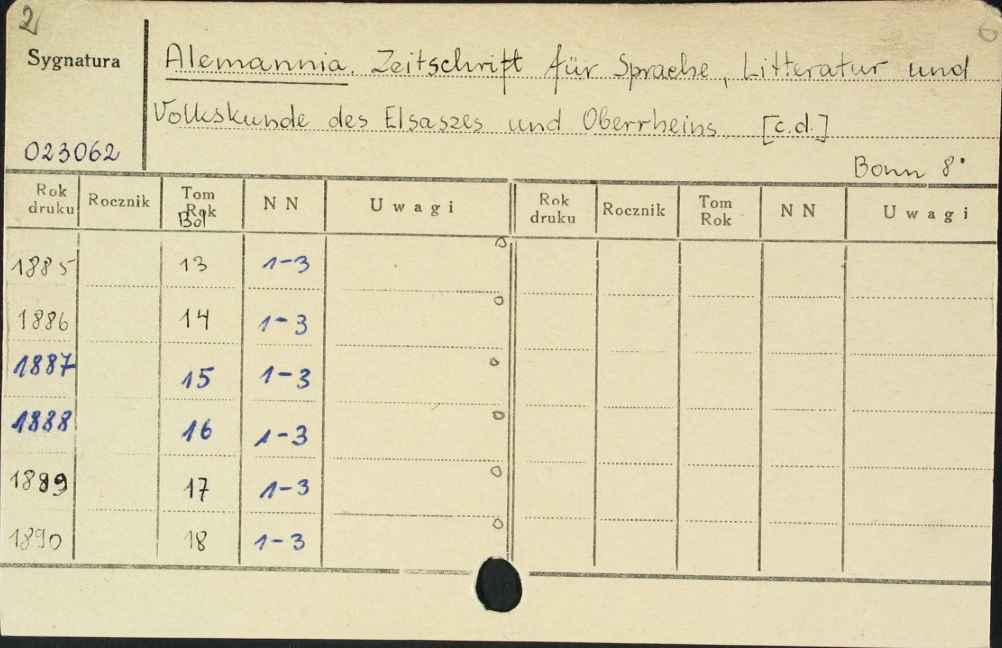 2
Sygnatura
023062
Alemannia. Zeitschrift für Sprache, Litteratur und
Volkskunde des Elsaszes und Oberrheins [c.d.]
Bonn 8°
Rok druku Rocznik Tom Rok Bd NN Uwagi Rok druku Rocznik Tom Rok NN Uwagi
1885 13 1-3
1886 14 1-3
1887 15 1-3
1888 16 1-3
1889 17 1-3
1890 18 1-3